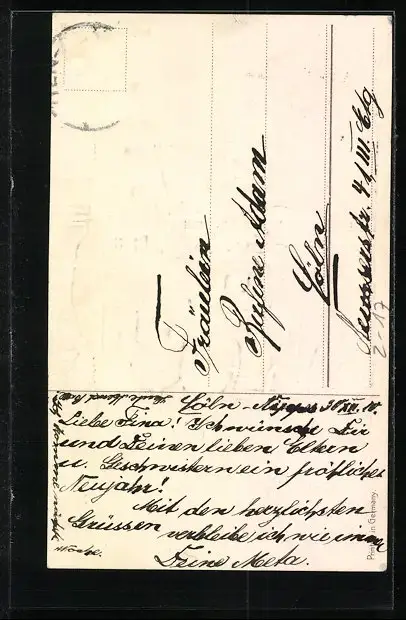 Fräulein
Adam
Cöln
41 III. Etg
2-17
Cöln - Nippes 30 XII. 10.
Liebe Fina! Ich wünsche Dir
und Deinen lieben Eltern
u. Geschwistern ein fröhliches
Neujahr!
Mit den herzlichsten
Grüssen verbleibe ich wie immer
Deine Meta.
Woche.
Printed in Germany